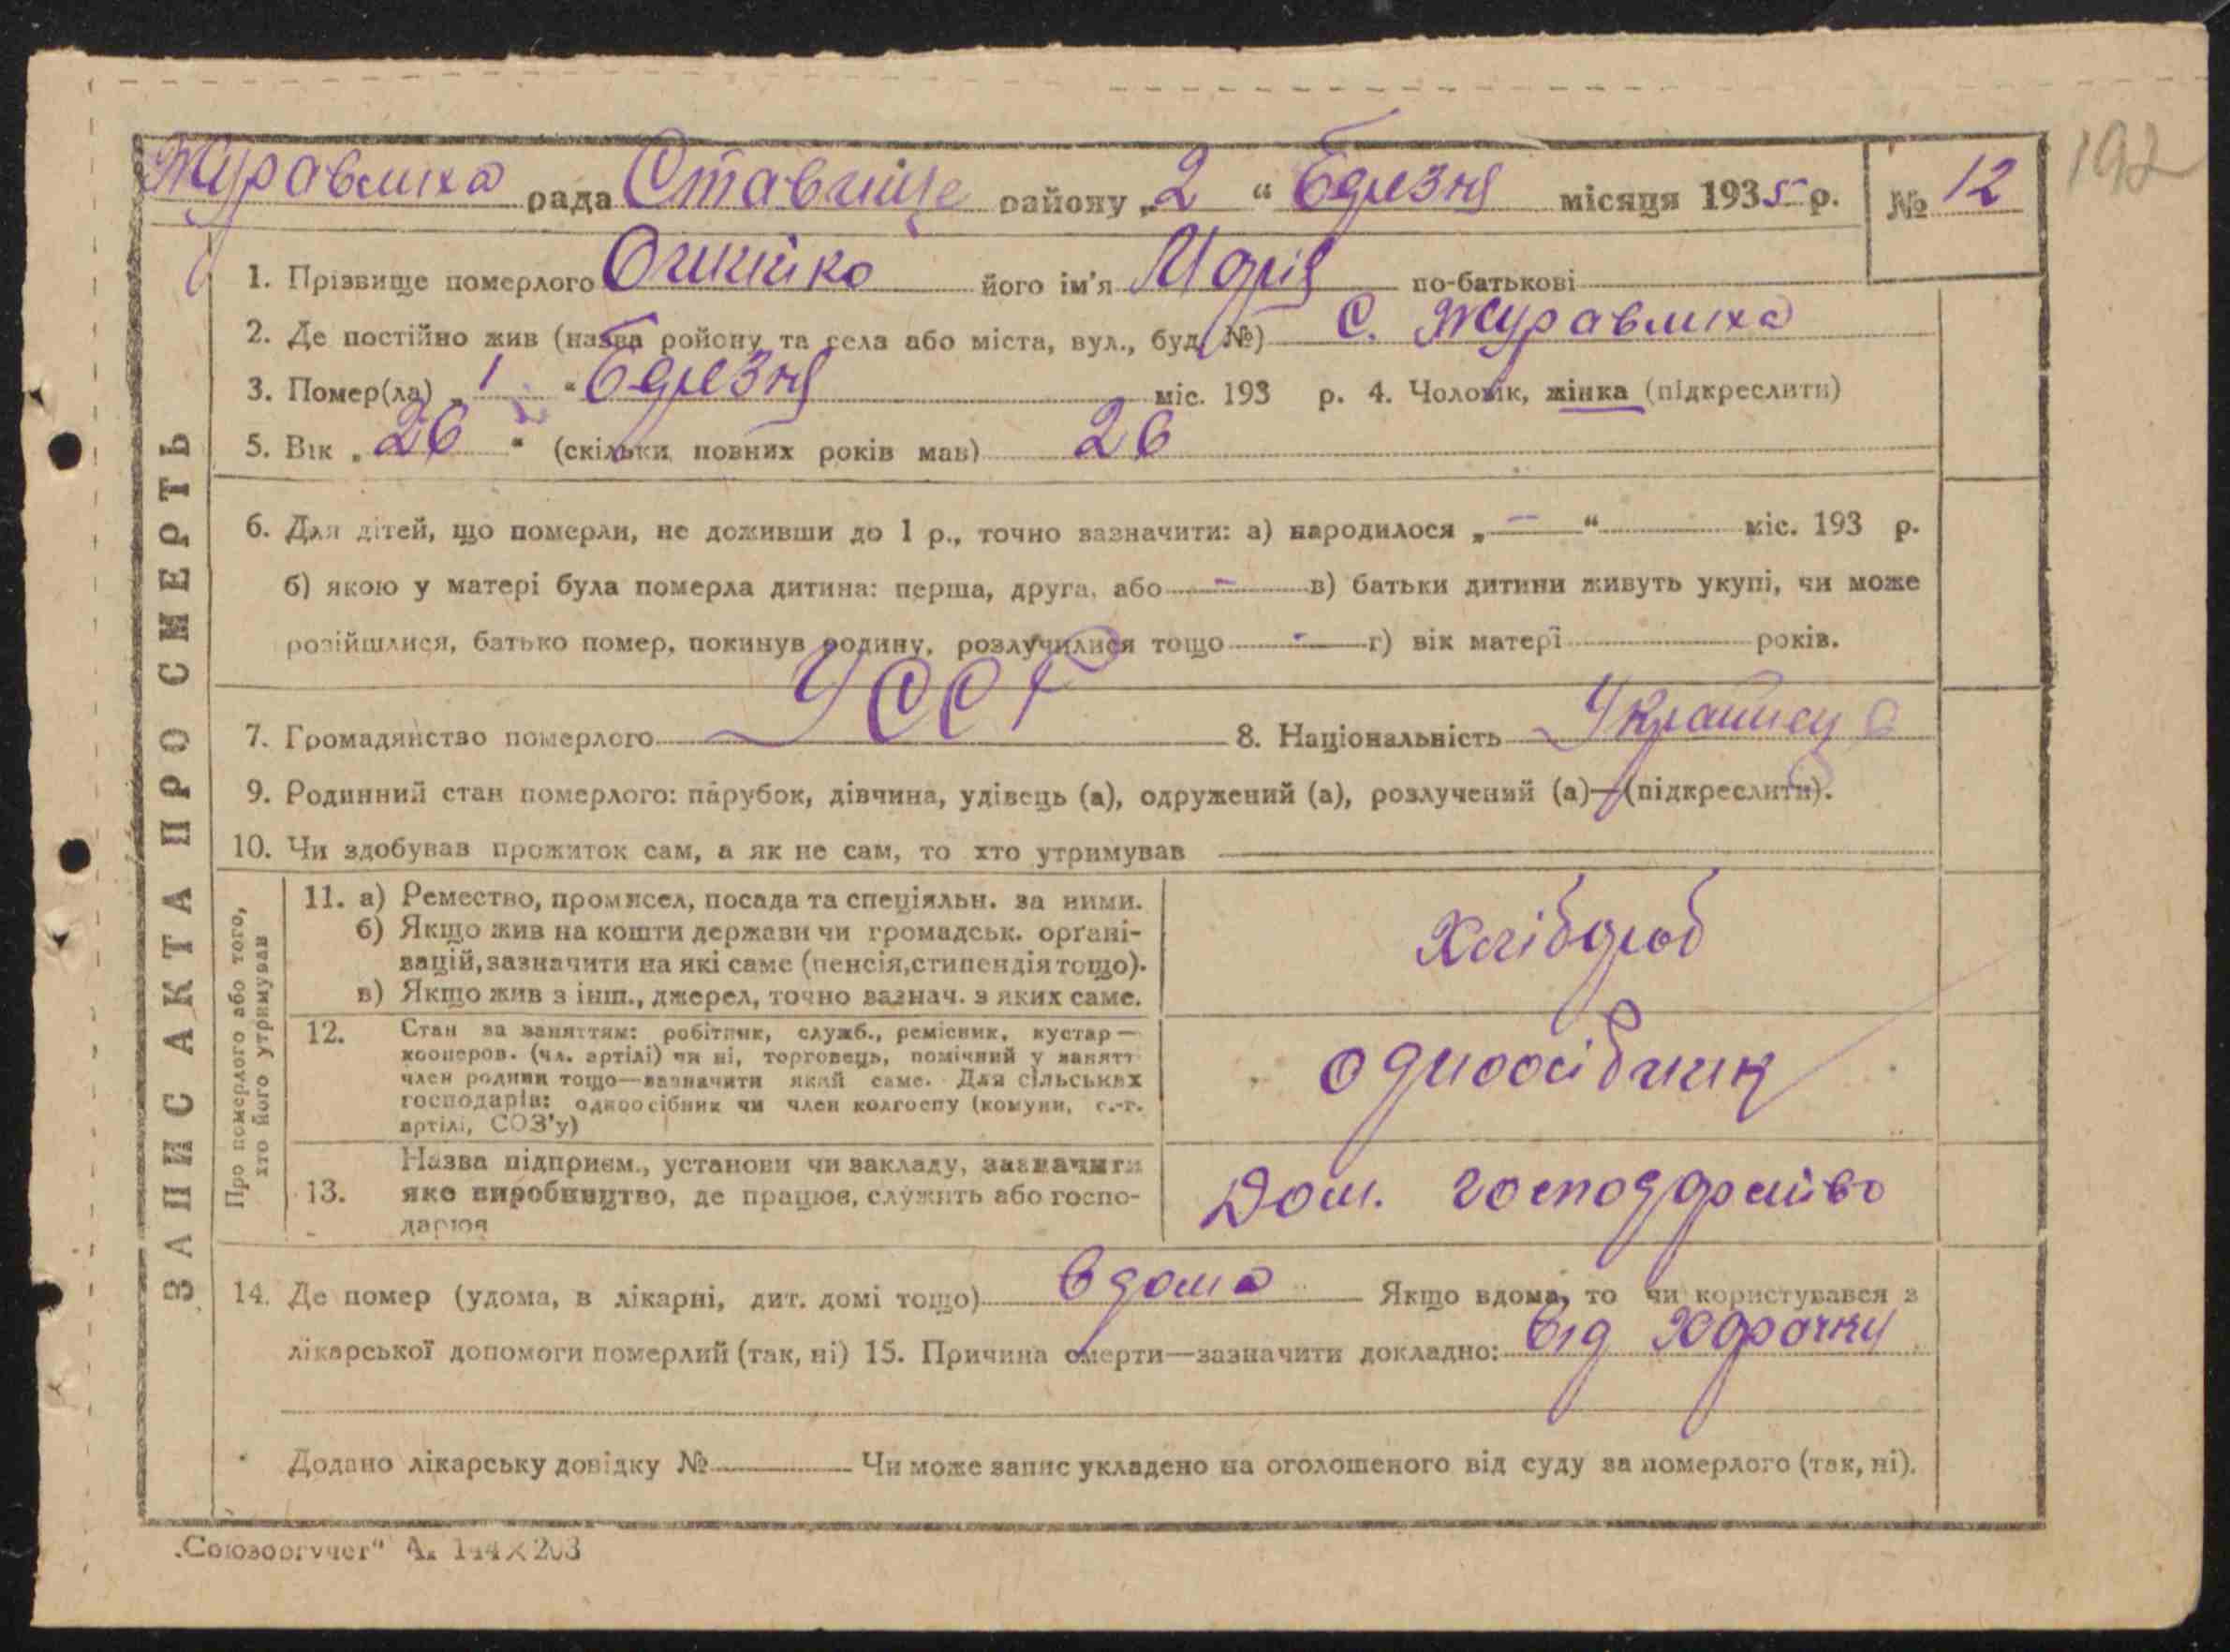 192
Журавлиха рада Ставище району „2“ Березня місяця 1935 р. № 12
1. Прізвище померлого Олійко його ім'я Марія по-батькові
2. Де постійно жив (назва ройону та села або міста, вул., буд. №) С. Журавлиха
3. Помер(ла) „1“ Березня міс. 193 р. 4. Чоловік, жінка (підкреслити)
5. Вік „26“ (скільки повних років мав) 26
6. Для дітей, що померли, не доживши до 1 р., точно зазначити: а) народилося „—“ міс. 193 р.
б) якою у матері була померла дитина: перша, друга, або — в) батьки дитини живуть укупі, чи може
розійшлися, батько помер, покинув родину, розлучилися тощо - г) вік матері років.
7. Громадянство померлого УССР 8. Національність Українц
9. Родинний стан померлого: парубок, дівчина, удівець (а), одружений (а), розлучений (а)—(підкреслити).
10. Чи здобував прожиток сам, а як не сам, то хто утримував
11. а) Ремество, промисел, посада та спеціяльн. за ними.
б) Якщо жив на кошти держави чи громадськ. орґані-
зацій, зазначити на які саме (пенсія, стипендія тощо).
в) Якщо жив з інш., джерел, точно зазнач. з яких саме.
Хлібороб
12. Стан за заняттям: робітник, служб., ремісник, кустар—
кооперов. (чл. артілі) чи ні, торговець, помічний у занятт
член родини тощо—зазначити який саме. Для сільських
господарів: одноосібник чи член колгоспу (комуни, с.-г.
артілі, СОЗ'у)
одноосібник
Назва підприєм., установи чи закладу, зазначити
13. яке виробництво, де працює, служить або госпо-
дарює
Дом. господарство
14. Де помер (удома, в лікарні, дит. домі тощо) вдома Якщо вдома, то чи користувався з
лікарської допомоги померлий (так, ні) 15. Причина смерти—зазначити докладно: від
Додано лікарську довідку № Чи може запис укладено на оголошеного від суду за померлого (так, ні).
ЗАПИС АКТА ПРО СМЕРТЬ
Про померлого або того,
хто його утримував
„Союзоргучет“ А. 144×203